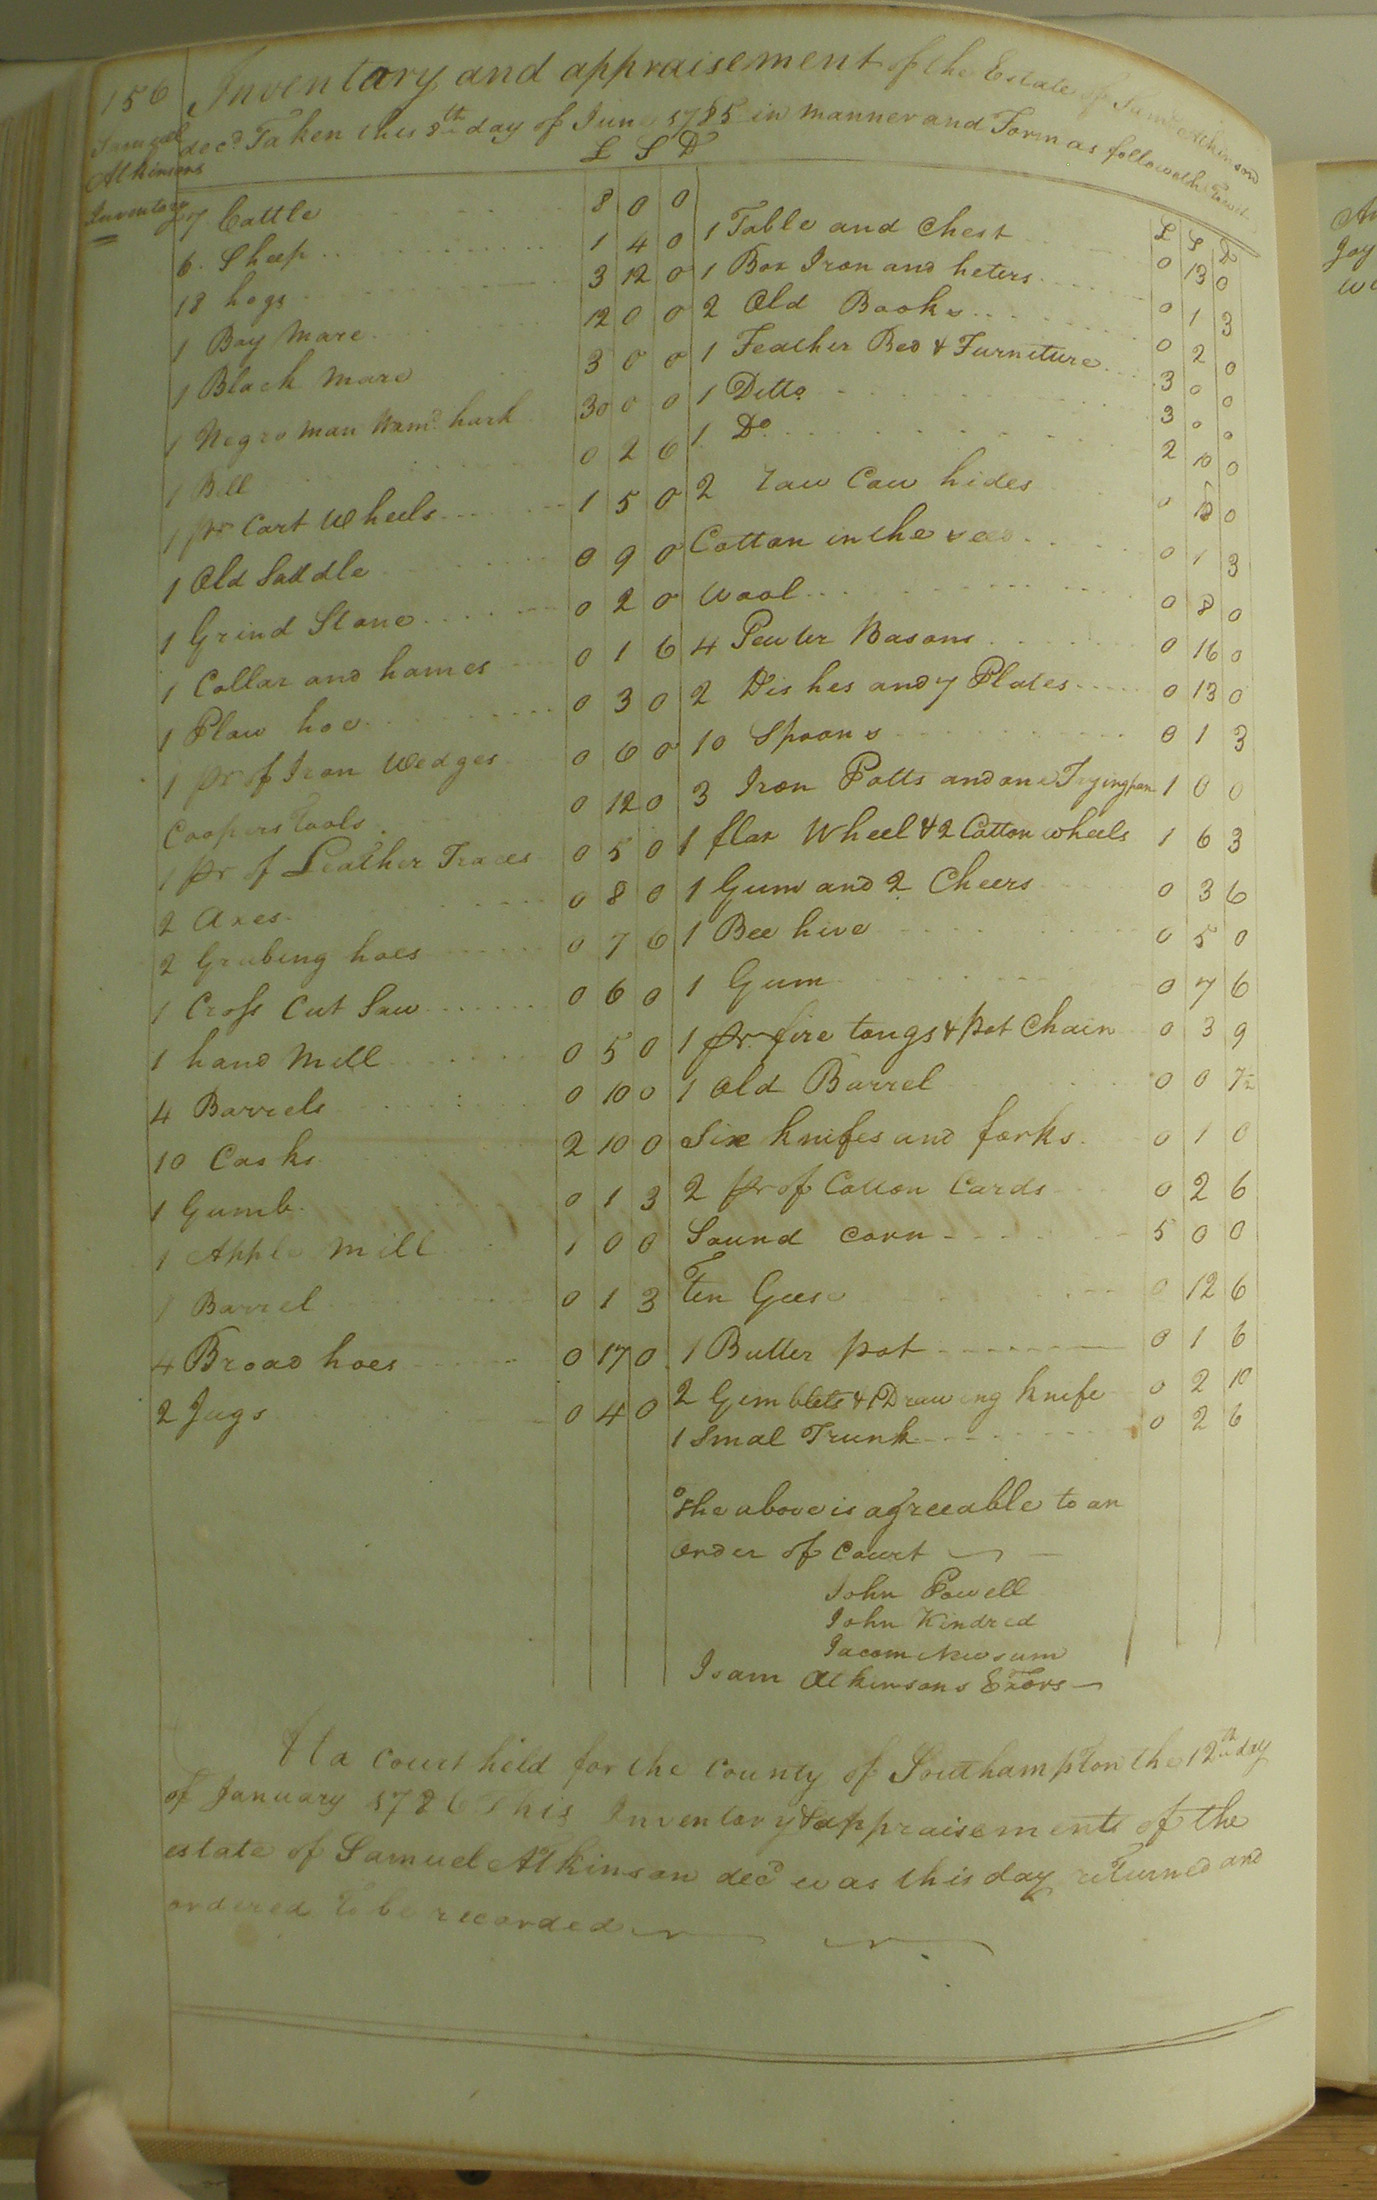 156
Inventory and appraisement of the Estate of Saml Atkinson
Samuel
Atkinsons
Inventory
decd. Taken this 8th day of June 1785 in manner and Form as followeth Towit
£ S D
7 Cattle 8 0 0
6 Sheep 1 4 0
18 hogs 3 12 0
1 Bay Mare 12 0 0
1 Black Mare 3 0 0
1 Negro man Namd. hark 30 0 0
1 Bell 0 2 6
1 pr Cart Wheels 1 5 0
1 Old Saddle 0 9 0
1 Grind Stone 0 2 0
1 Collar and hames 0 1 6
1 Plow hoe 0 3 0
1 pr of Iron Wedges 0 6 0
Coopers Tools 0 12 0
1 pr of Leather Traces 0 5 0
2 Axes 0 8 0
2 Grubing hoes 0 7 6
1 Cross Cut Saw 0 6 0
1 hand Mill 0 5 0
4 Barrels 0 10 0
10 Casks 2 10 0
1 Gumb 0 1 3
1 Apple Mill 1 0 0
1 Barrel 0 1 3
4 Broad hoes 0 17 0
2 Jugs 0 4 0
£ S D
1 Table and Chest 0 13 0
1 Box Iron and heters 0 1 3
2 Old Books 0 2 0
1 Feather Bed & Furniture 3 0 0
1 Ditto 3 0 0
1 Do. 2 10 0
2 raw Cow hides 0 0
Cotton in the seed 0 1 3
Wool 0 8 0
4 Pewter Basons 0 16 0
2 Dishes and 7 Plates 0 13 0
10 Spoons 0 1 3
3 Iron Potts and one Fryingpan 1 0 0
1 flax Wheel & 2 Cotton wheels 1 6 3
1 Gum and 2 Cheers 0 3 6
1 Bee hive 0 5 0
1 Gum 0 7 6
1 pr. fire tongs & Pot Chain 0 3 9
1 Old Barrel 0 0 7½
Six knifes and forks 0 1 0
2 pr of Cotton Cards 0 2 6
Sound Corn 5 0 0
Ten Geese 0 12 6
1 Butter pot 0 1 6
2 Gimblets & 1 Drawing knife 0 2 10
1 Smal Trunk 0 2 6
The above is agreeable to an
order of Court
John Powell
John Kindred
Jacom Newsum
Isam Atkinsons Exors
At a Court held for the County of Southampton the 12th day
of January 1786 This Inventory & appraisements of the
estate of Samuel Atkinson decd was this day returned and
ordered to be recorded